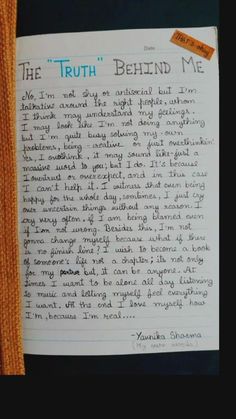 Date
That's okay
THE "TRUTH" BEHIND ME
No, I'm not shy or antisocial but I'm
talkative around the right people, whom
I think may understand my feelings.
I may look like I'm not doing anything
but I'm quite busy solving my own
problems, being creative or just overthinkin'
Yes, I overthink, it may sound like just a
massive word to you, but I do. It's because
I overtrust or overexpect, and in this case
I can't help it. I witness that even being
happy for the whole day, sometimes, I just cry
over uncertain things without any reason. I
cry very often, if I am being blamed even
if I am not wrong. Besides this, I'm not
gonna change myself because what if there
is no finish line? I wish to become a book
of someone's life not a chapter; its not only
for my but, it can be anyone. At
times I want to be alone all day listening
to music and letting myself feel everything
I want. At the end I love myself how
I'm, because I'm real....
- Yaunika Sharma
(My